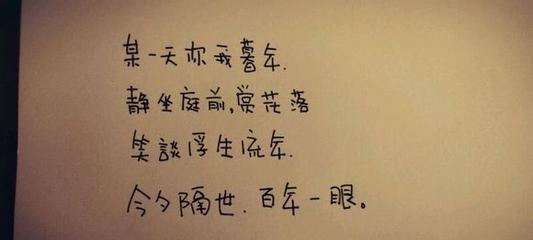 某一天你我暮年.
静坐庭前,赏花落
笑談浮生流年.
今夕隔世.百年一眼。